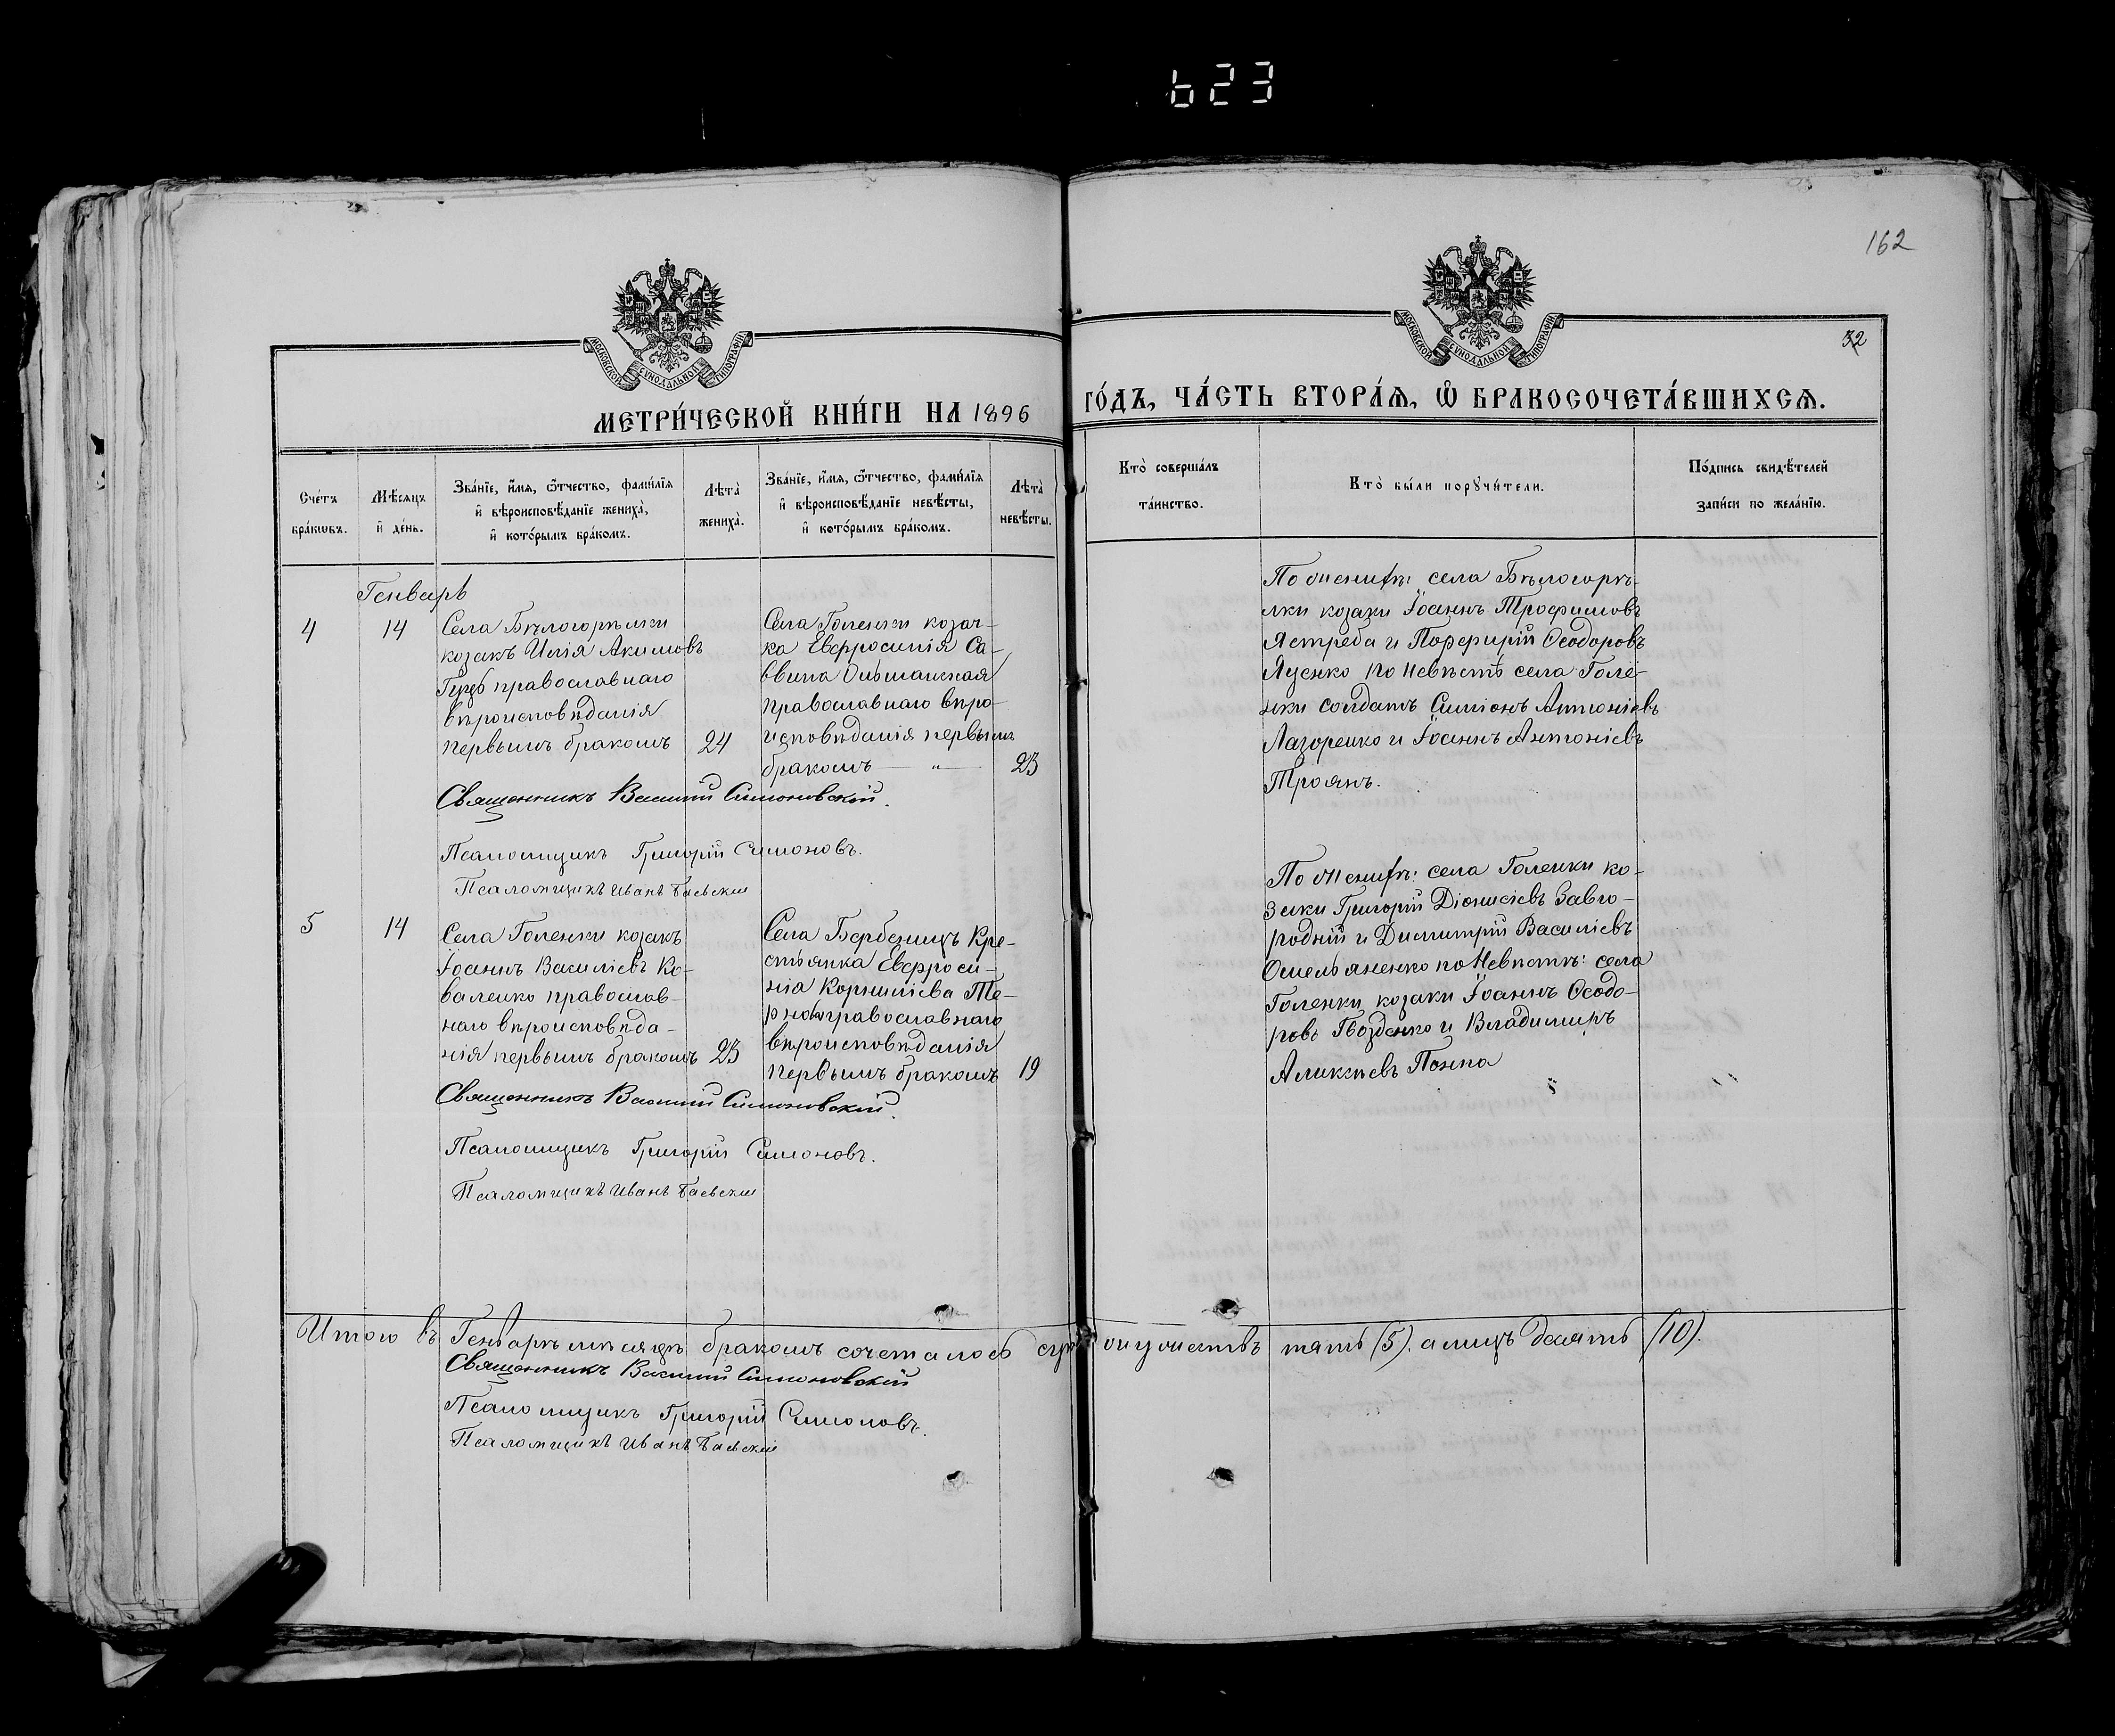 623
162
32
МОСКОВСКОЙ СѴНОДАЛЬНОЙ ТИПОГРАФІИ
МОСКОВСКОЙ СѴНОДАЛЬНОЙ ТИПОГРАФІИ
МЕТРИ́ЧЕСКОЙ КНИ́ГИ НА 1896 ГО́ДЪ, ЧА́СТЬ ВТОРА́Ѧ, Ѽ БРАКОСОЧЕТА́ВШИХСѦ.
Сче́тъ бра́кѡвъ.
Мѣ́сяцъ и҆ де́нь.
Зва́нїе, и҆́мѧ, ѻ҆́тчество, фами́лїѧ
и҆ вѣроисповѣ́данїе жениха̀,
и҆ кото́рымъ бра́комъ.
Лѣта̀ жениха̀.
Зва́нїе, и҆́мѧ, ѻ҆́тчество, фами́лїѧ
и҆ вѣроисповѣ́данїе невѣ́сты,
и҆ кото́рымъ бра́комъ.
Лѣта̀ невѣ́сты.
Кто̀ соверша́лъ
та́инство.
Кто̀ бы́ли порꙋчи́тели.
По́дпись свидѣ́телей
за́писи по жела́нїю.
Генварь
4
14
Села Бѣлогорѣлки
козакъ Илія Акимовъ
православнаго
вѣроисповѣданія
первымъ бракомъ
24
Села Голенки козач-
ка Евфросинія Са-
ввина Ольшанская
православнаго вѣро-
исповѣданія первымъ
бракомъ — " —
23
По женихѣ: села Бѣлогорѣ-
лки козаки Іоаннъ Трофимовъ
Ястреба и Порфирій Ѳеодоровъ
Яценко по невѣстѣ села Голе-
нки солдатъ Симіонъ Антоніевъ
Лазоренко и Іоаннъ Антоніевъ
Троянъ.
Священникъ Василій Симоновскій.
Псаломщикъ Григорій Симоновъ.
Псаломщикъ Иванъ Баевскій
5
14
Села Голенки козакъ
Іоаннъ Василіевъ Ко-
валенко православ-
наго вѣроисповѣда-
нія первымъ бракомъ
23
Села Берберницъ Кре-
стьянка Евфроси-
нія Корниліева Те-
православнаго
вѣроисповѣданія
первымъ бракомъ
19
По женихѣ: села Голенки ко-
заки Григорій Діонисіевъ Завго-
родній и Димитрій Василіевъ
Омельяненко по невѣстѣ: села
Голенки козаки Іоаннъ Ѳеодо-
ровъ Гвозденко и Владимиръ
Аликсѣевъ Попка
Священникъ Василій Симоновскій.
Псаломщикъ Григорій Симоновъ.
Псаломщикъ Иванъ Баевскій
Итого въ Генварѣ мѣсяцѣ бракомъ сочеталось супружествъ пять (5). а лицъ десять (10).
Священникъ Василій Симоновскій
Псаломщикъ Григорій Симоновъ.
Псаломщикъ Иванъ Баевскій